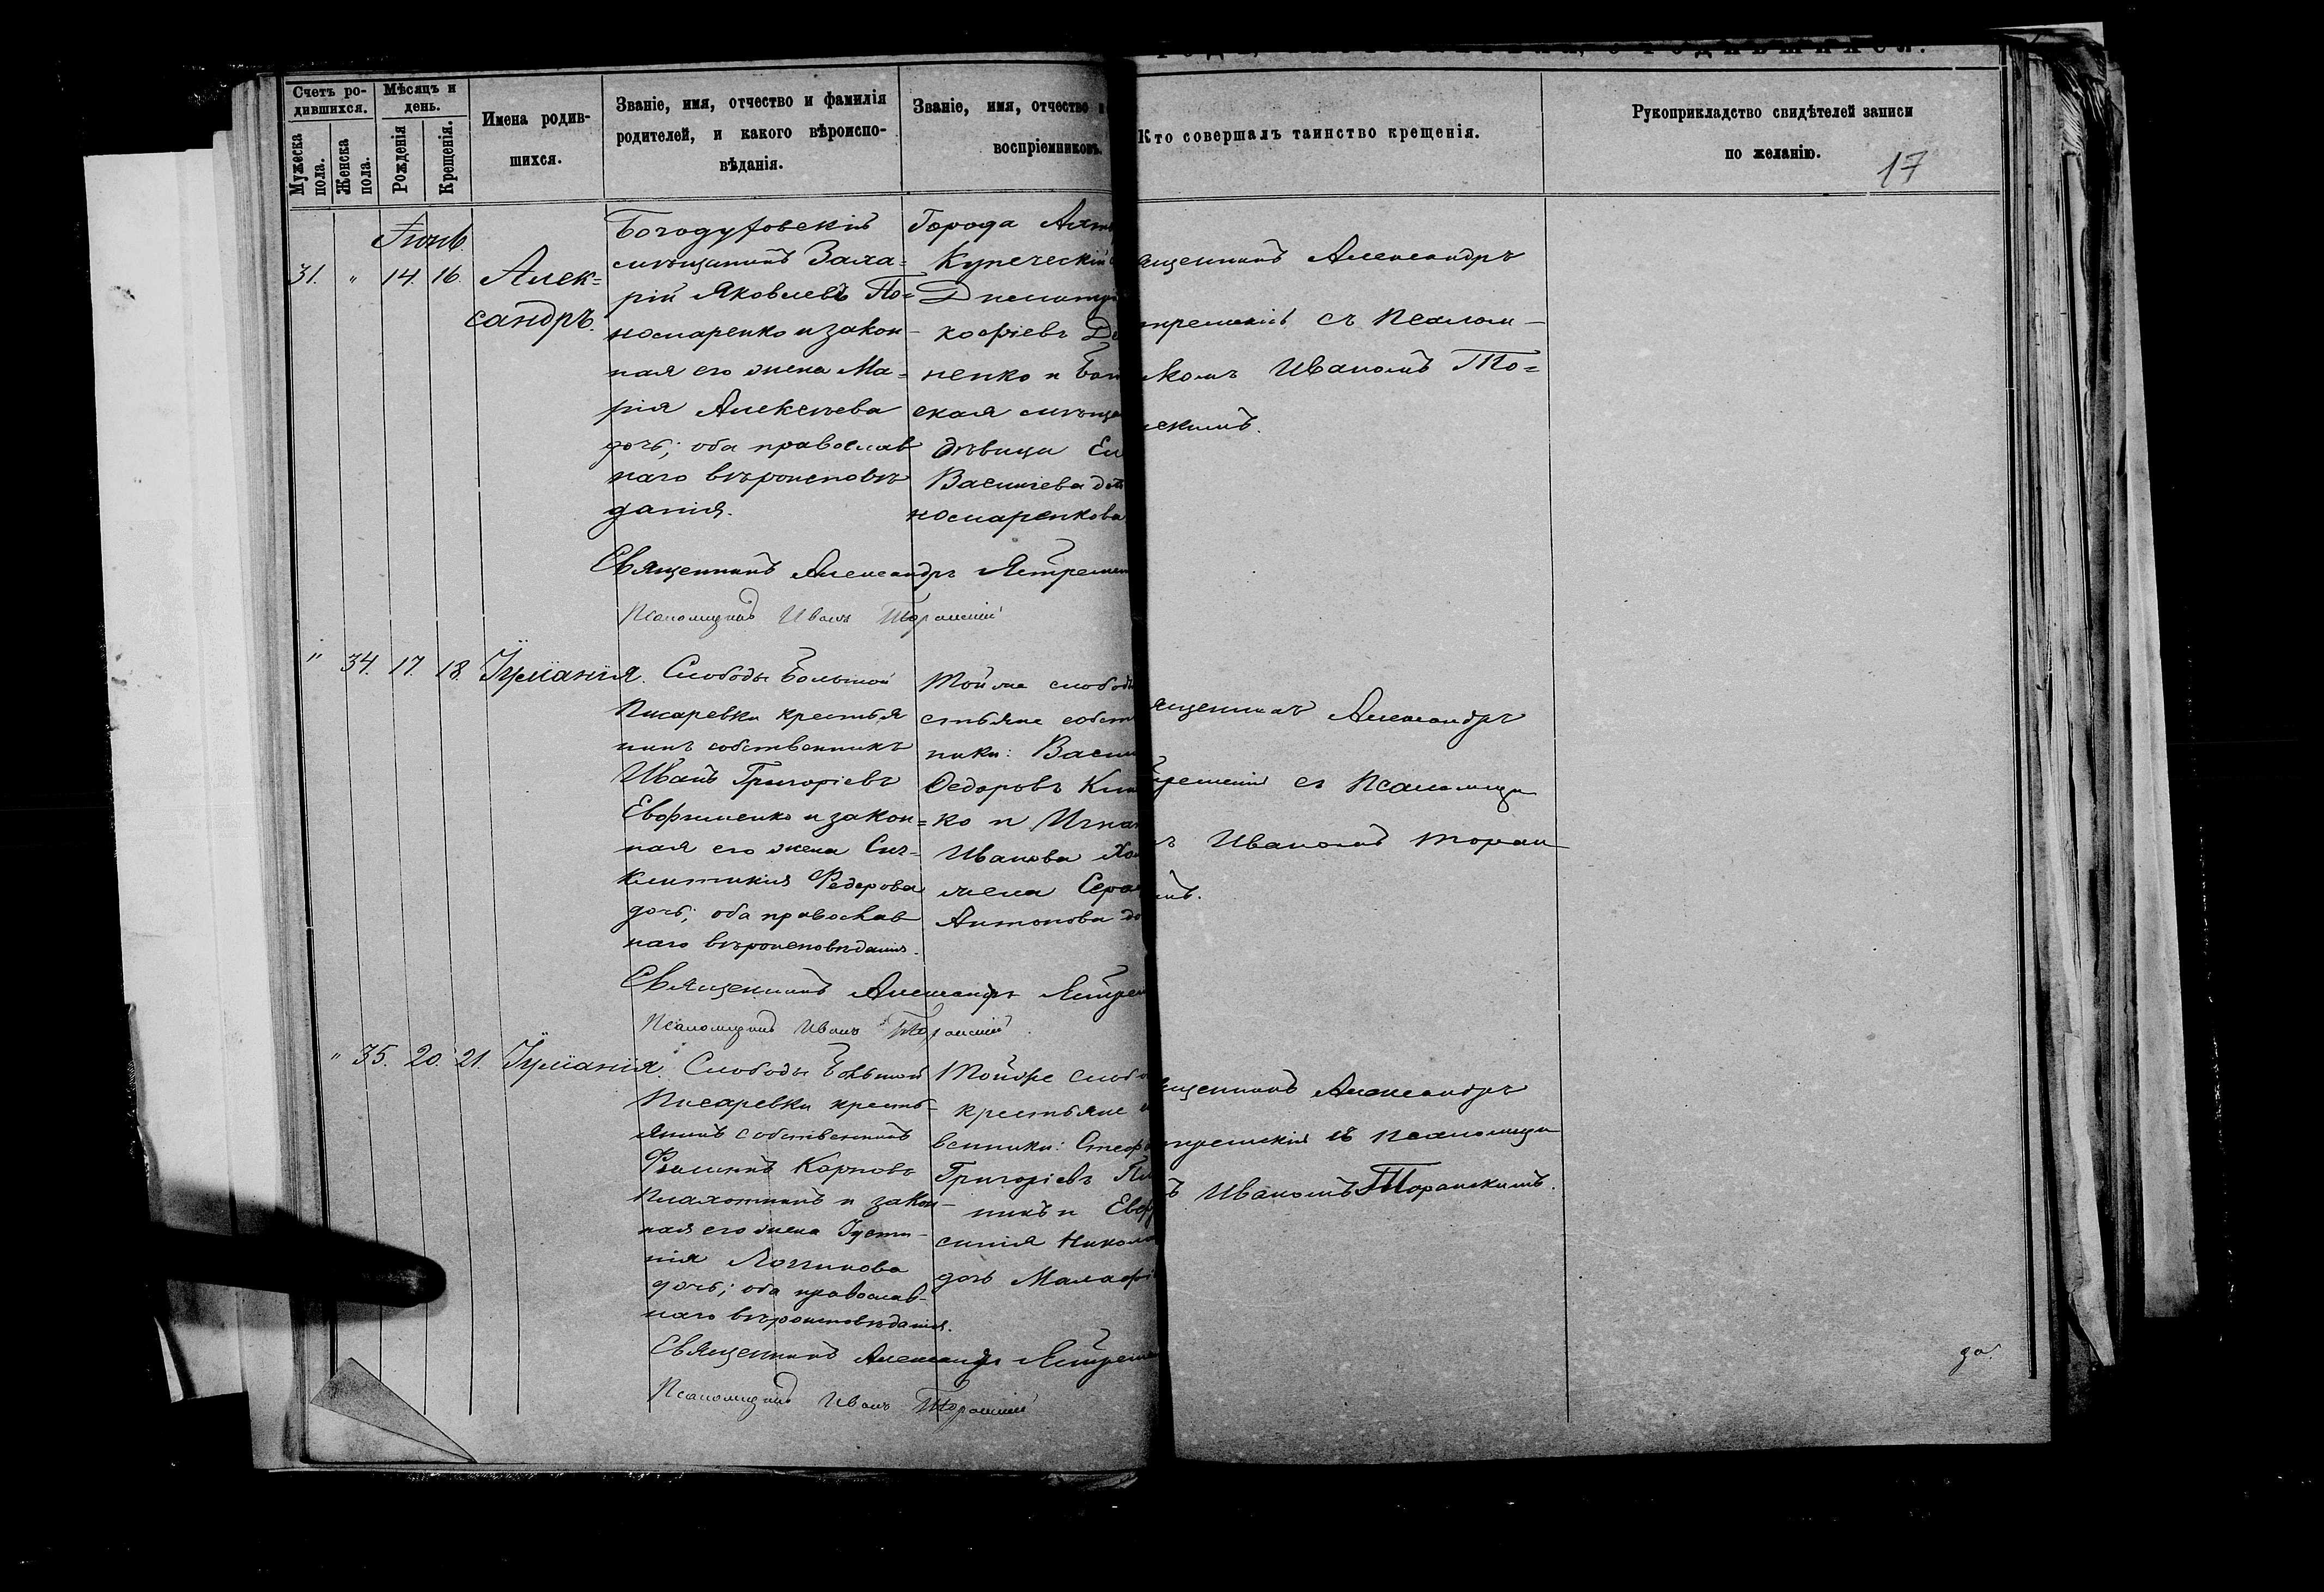 Счетъ ро-
дившихся.
Мѣсяцъ и
день.
Мужеска
пола.
Женска
пола.
Рожденія
Крещенія.
Имена родив-
шихся.
Званіе, имя, отчество и фамилія
родителей, и какого вѣроиспо-
вѣданія.
Званіе, имя, отчество
воспріемниковъ.
Кто совершалъ таинство крещенія.
Рукоприкладство свидѣтелей записи
по желанію.
17
Іюнь
31. " 14. 16. Алек=
сандръ.
Богодуховскій
мѣщанинъ Заха=
рій Яковлевъ По=
номаренко и закон-
ная его жена Ма=
рія Алексѣева
дочь; оба православ
наго вѣроисповѣ
данія.
Города
Купеческій
кофіевъ
ненко и Бог
ская мѣща
дѣвица Ел
Васильева
номаренкова
ященникъ Александръ
тремскій съ Псалом-
комъ Иваномъ То=
скимъ.
Священникъ Александръ
Псаломщикъ Иванъ Торанскій
" 34. 17. 18. Іуліанія.
Слободы Большой
Писаревки крестья
нинъ собственникъ
Иванъ Григорьевъ
Евфименко и закон=
ная его жена Син-
клитикія Федорова
дочь; оба православ
наго вѣроисповѣданія.
Той же слобод
стьяне собст
ники: Васи
Федоровъ
ко и Игна
Иванова
жена Сера
Антонова до
ященникъ Александръ
с Псаломщи
ъ Иваномъ Торан
имъ.
Священникъ Александръ
Псаломщикъ Иванъ Торанскій.
" 35. 20. 21. Іуліанія.
Слободы Большой
Писаревки кресть-
янинъ собственникъ
Филиппъ Карповъ
Плахотникъ и закон-
ная его жена Густи-
нія Логгинова
дочь; оба православ-
наго вѣроисповѣданія.
Той же слобо
крестьяне
венники: Стеф
Григорьевъ Пл
никъ и Евф
синія Никола
дочь Малафі
щенникъ Александръ
съ Псаломщи
ъ Иваномъ Торанскимъ.
Священникъ Александръ
Псаломщикъ Иванъ Торанскій